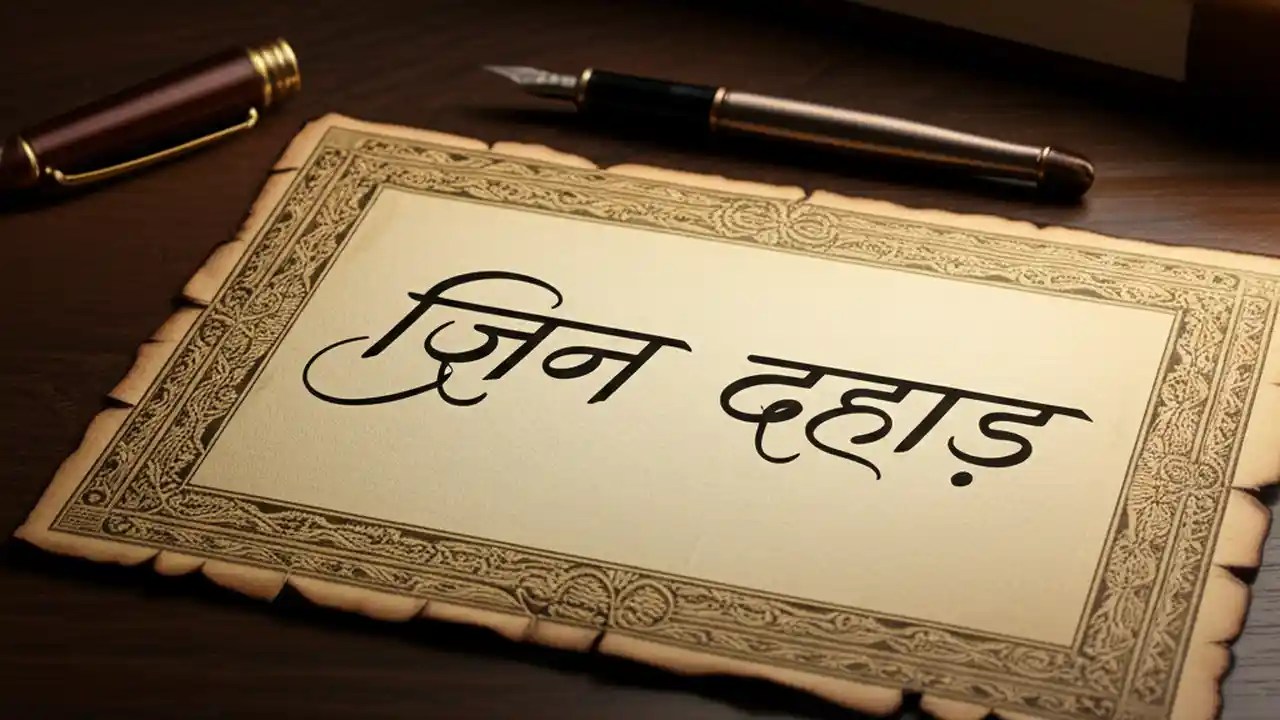 जिन दहाड़